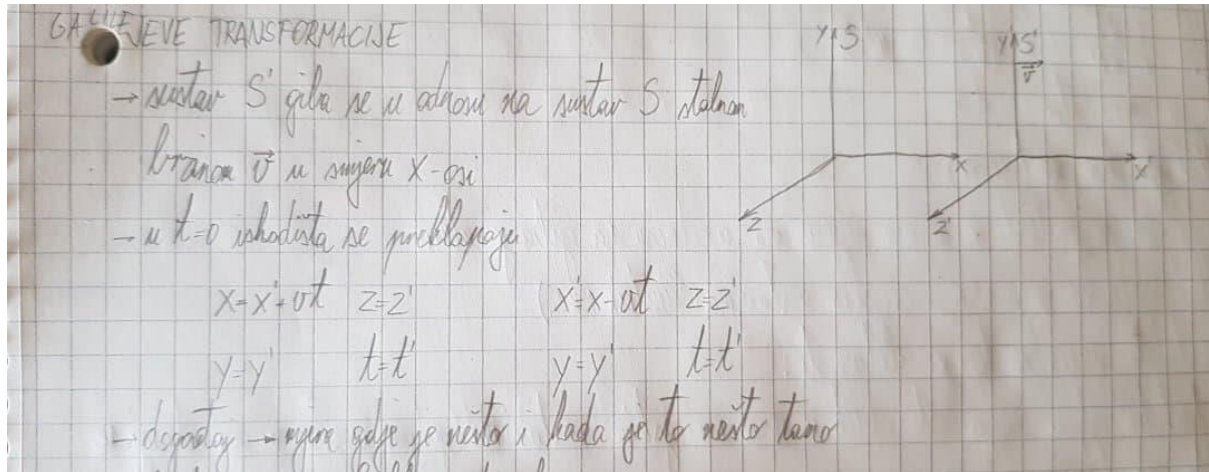 GALILEJEVE TRANSFORMACIJE
→ sustav S' giba se u odnosu na sustav S stalnom
brzinom v⃗ u smjeru X-osi
- u t=0 ishodišta se preklapaju
x=x'+vt z=z' x'=x-vt z=z'
y=y' t=t' y=y' t=t'
- događaj → mjera gdje je nešto i kada je to nešto tamo
y S
y' S'
v⃗
x
x'
z
z'